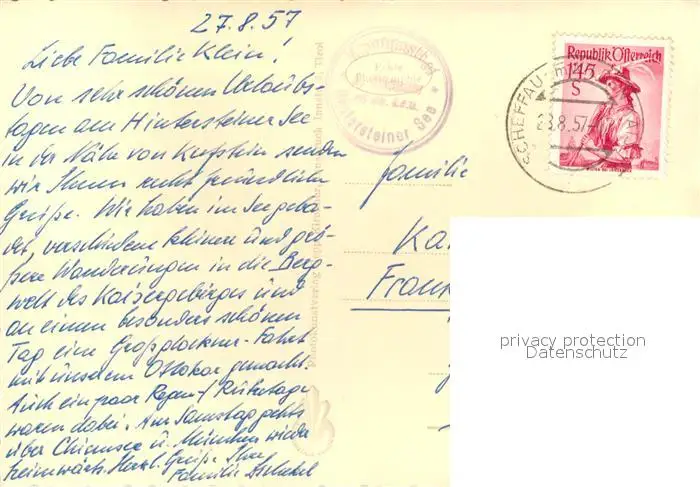 27.8.57
Liebe Familie Klein!
Von sehr schönen Urlaubs-
tagen am Hintersteiner See
in der Nähe von Kufstein senden
wir Ihnen recht freundliche
Grüße. Wir haben im See geba-
det, verschiedene kleinere und grö-
ßere Wanderungen in die Berg-
welt des Kaisergebirges und
an einem besonders schönen
Tag eine Großglockner-Fahrt
mit unserem Ottokar gemacht.
Auch ein paar Regen-/Ruhetage
waren dabei. Am Samstag gehts
über Chiemsee u. München wieder
heimwärts. Herzl. Grüße Ihre
Familie
Hintersteiner See
Republik Österreich
1.45
S
SCHEFFAU
28.8.57
Familie
Ka
Frank
privacy protection
Datenschutz